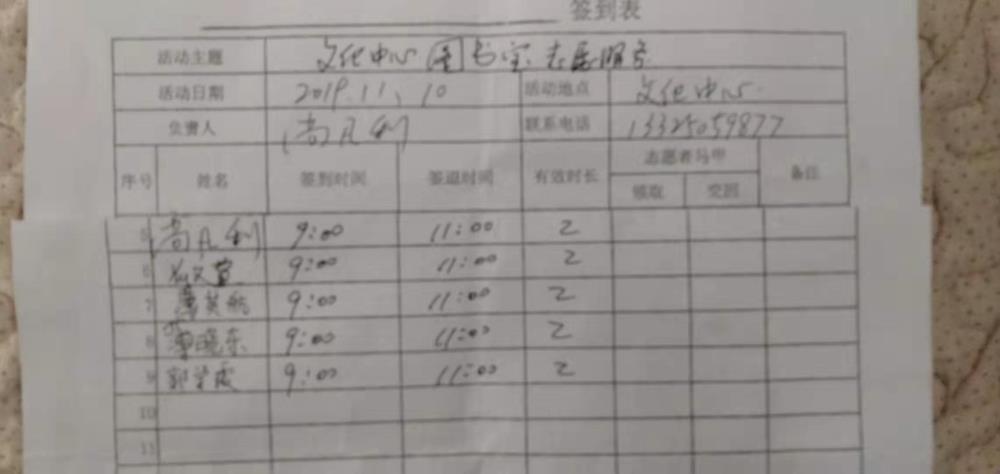 签到表
活动主题 文化中心图书室志愿服务
活动日期 2019.11.10 活动地点 文化中心
负责人 尚凡利 联系电话 13325059877
序号 姓名 签到时间 签退时间 有效时长 志愿者马甲 备注
领取 交回
5 尚凡利 9:00 11:00 2
6 9:00 11:00 2
7 9:00 11:00 2
8 晓东 9:00 11:00 2
9 郭 霞 9:00 11:00 2
10
11